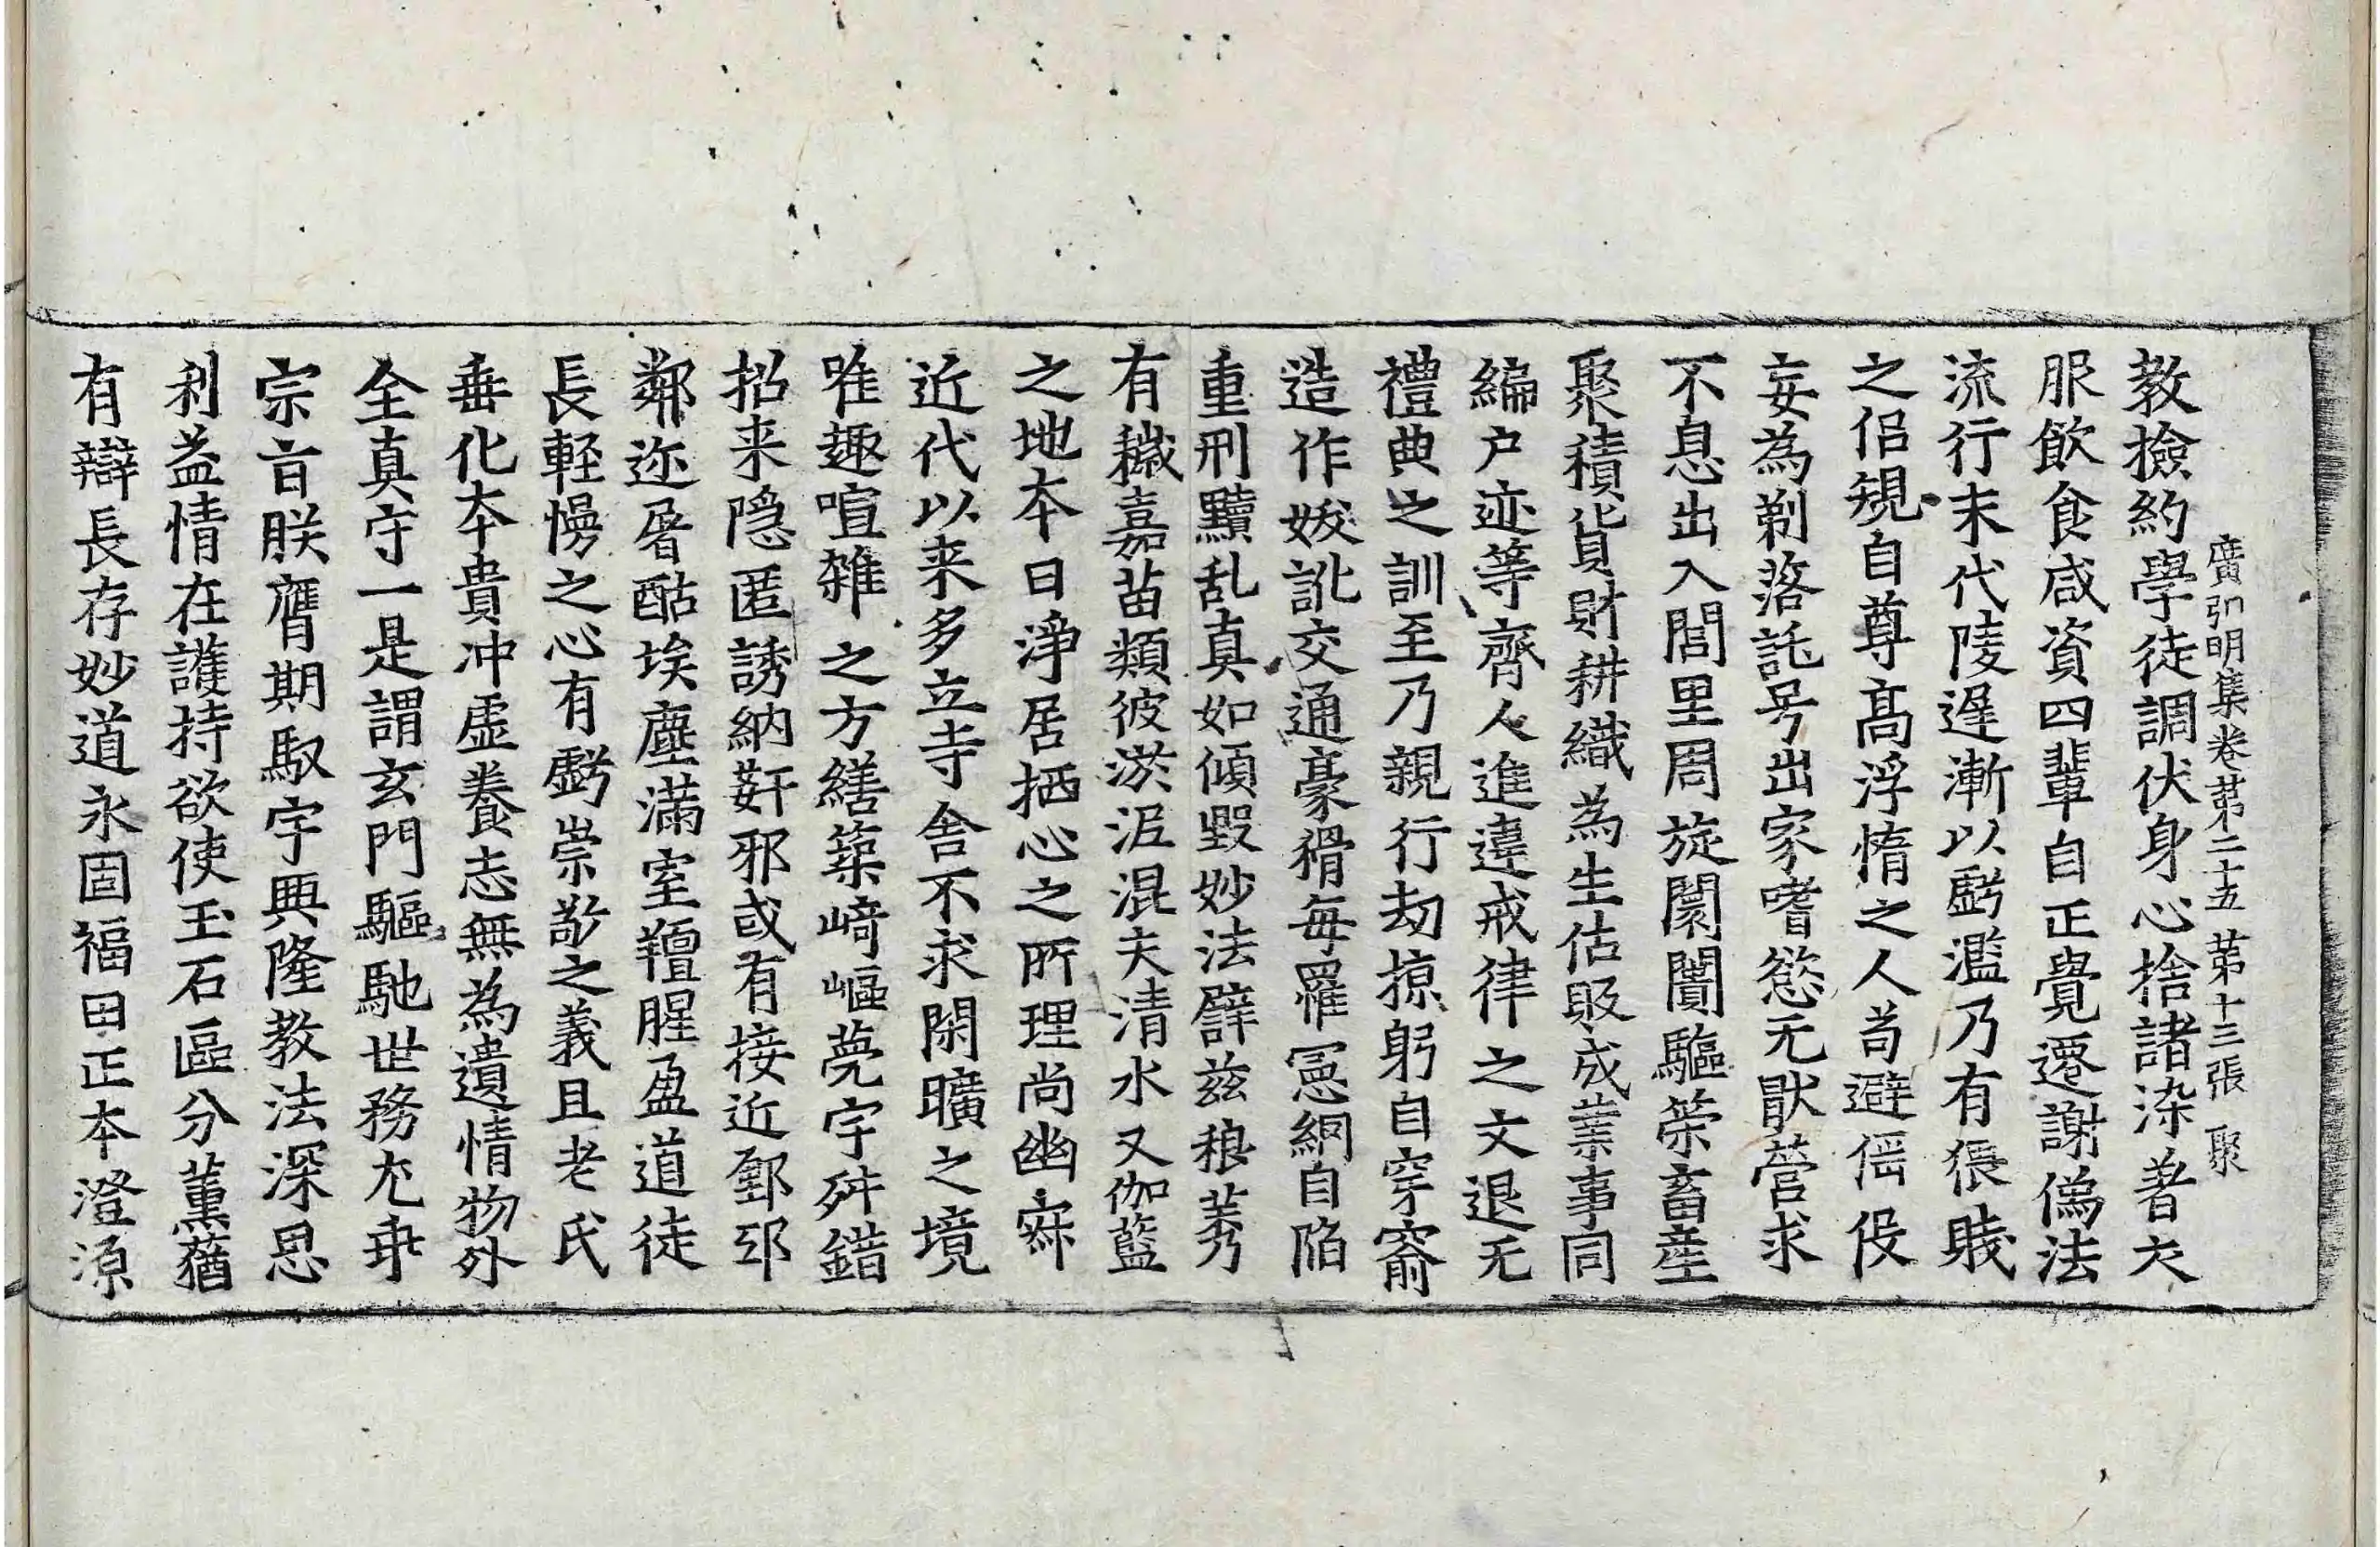 廣弘明集卷第二十五 第十三張 聚
教撿約學徒調伏身心捨諸染著衣
服飲食咸資四輩自正覺遷謝僞法
流行末代陵遲漸以虧濫乃有猥賤
之侣規自尊髙浮惰之人苟避徭伇
妄為剃落託号出家嗜慾无猒營求
不息出入閭里周旋闤闠驅策畜産
聚積貨財耕織為生估販成業事同
編户迹等齊人進違戒律之文退无
禮典之訓至乃親行劫掠躬自穿窬
造作妖訛交通豪猾每罹憲綱自陷
重刑黷乱真如傾毀妙法譬兹稂莠
有穢嘉苗類彼淤泥混夫清水又伽藍
之地本曰淨居栖心之所理尚幽寂
近代以来多立寺舎不求閑曠之境
唯趣喧雜之方繕築﨑嶇甍宇舛錯
招来隐匿誘納姧邪或有接近鄽邸
鄰迩屠酤埃塵滿室羶腥盈道徒
長輕慢之心有虧崇敬之義且老氏
垂化本貴冲虚養志無為遺情物外
全真守一是謂玄門驅馳世務尤乖
宗旨朕膺期馭宇興隆教法深思
利益情在護持欲使玉石區分薰蕕
有辯長存妙道永固福田正本澄源